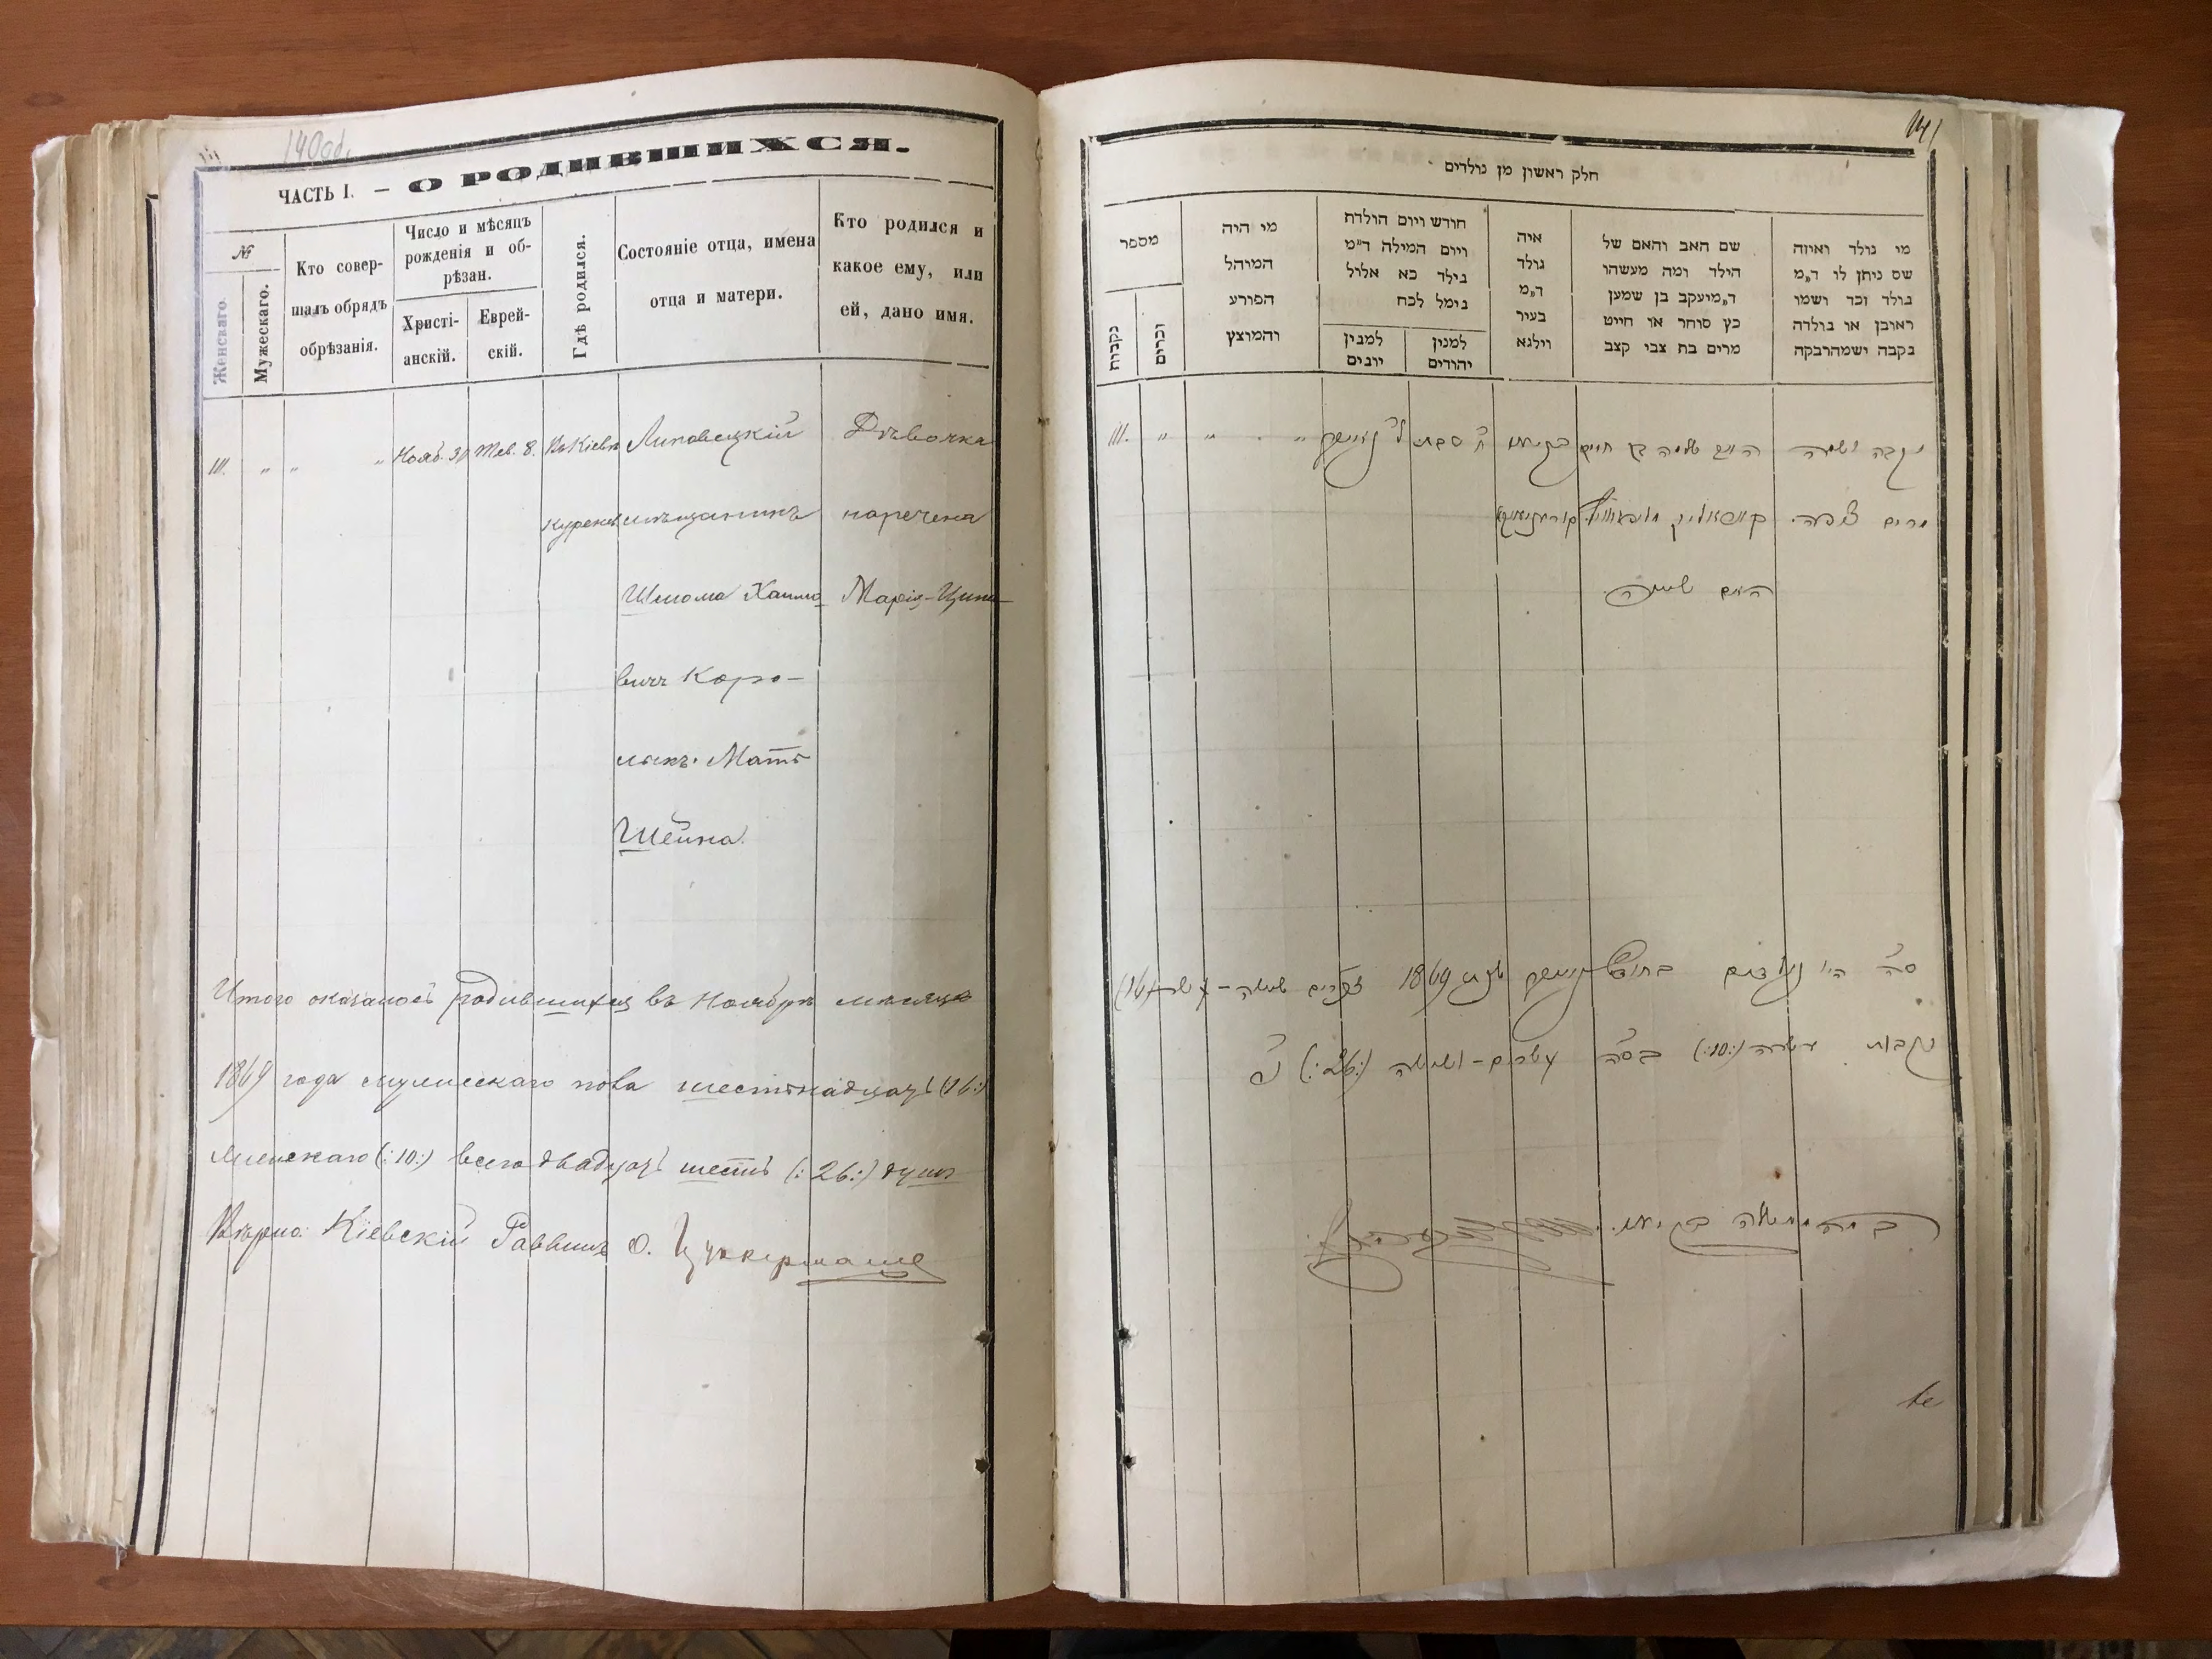 140 об.
ЧАСТЬ I. — О РОДИВШИХСЯ.
№
Женскаго.
Мужескаго.
Кто совер-
шалъ обрядъ
обрѣзанія.
Число и мѣсяцъ
рожденія и об-
рѣзан.
Христі-
анскій.
Еврей-
скій.
Гдѣ родился.
Состояніе отца, имена
отца и матери.
Кто родился и
какое ему, или
ей, дано имя.
111. „ „ „ Нояб. Тев. 8. Въ Кіевѣ Липовецкій Дѣвочка
мѣщанинъ наречена
Шлома Хаимо Марія-Ципа
вичъ Коро-
Мать
Шейна.
Итого оказалось родившихся въ Ноябрѣ мѣсяцѣ
1869 года мужескаго пола шестьнадцать (16:)
Женскаго (:10:) всего двадцать шесть (:26:) душъ
Вѣрно: Кіевскій Раввинъ О. Цуккерманъ
141
חלק ראשון מן נולדים
מספר
נקבות
זכרים
מי היה
המוהל
הפורע
והמוצץ
חודש ויום הולדת
ויום המילה ד״מ
נילד כא אלול
נימל לכח
למנין
יונים
למנין
יהודים
איה
נולד
ד״מ
בעיר
ווילנא
שם האב והאם של
הילד ומה מעשהו
ד״מ יעקב בן שמעון
כץ סוחר או חייט
מרים בת צבי קצב
מי נולד ואיזה
שם ניתן לו ד״מ
נולד זכר ושמו
ראובן או נולדה
נקבה ושמה רבקה
נקבה ושמה האב שלמה בן חיים ח טבת 111.
מרים צפה.
האם שיינה.
סה״כ היו נולדים בחודש 1869 זכרים ששה-עשר (16)
נקבות עשרה (:10:) בסה״כ עשרים-וששה (:26:)